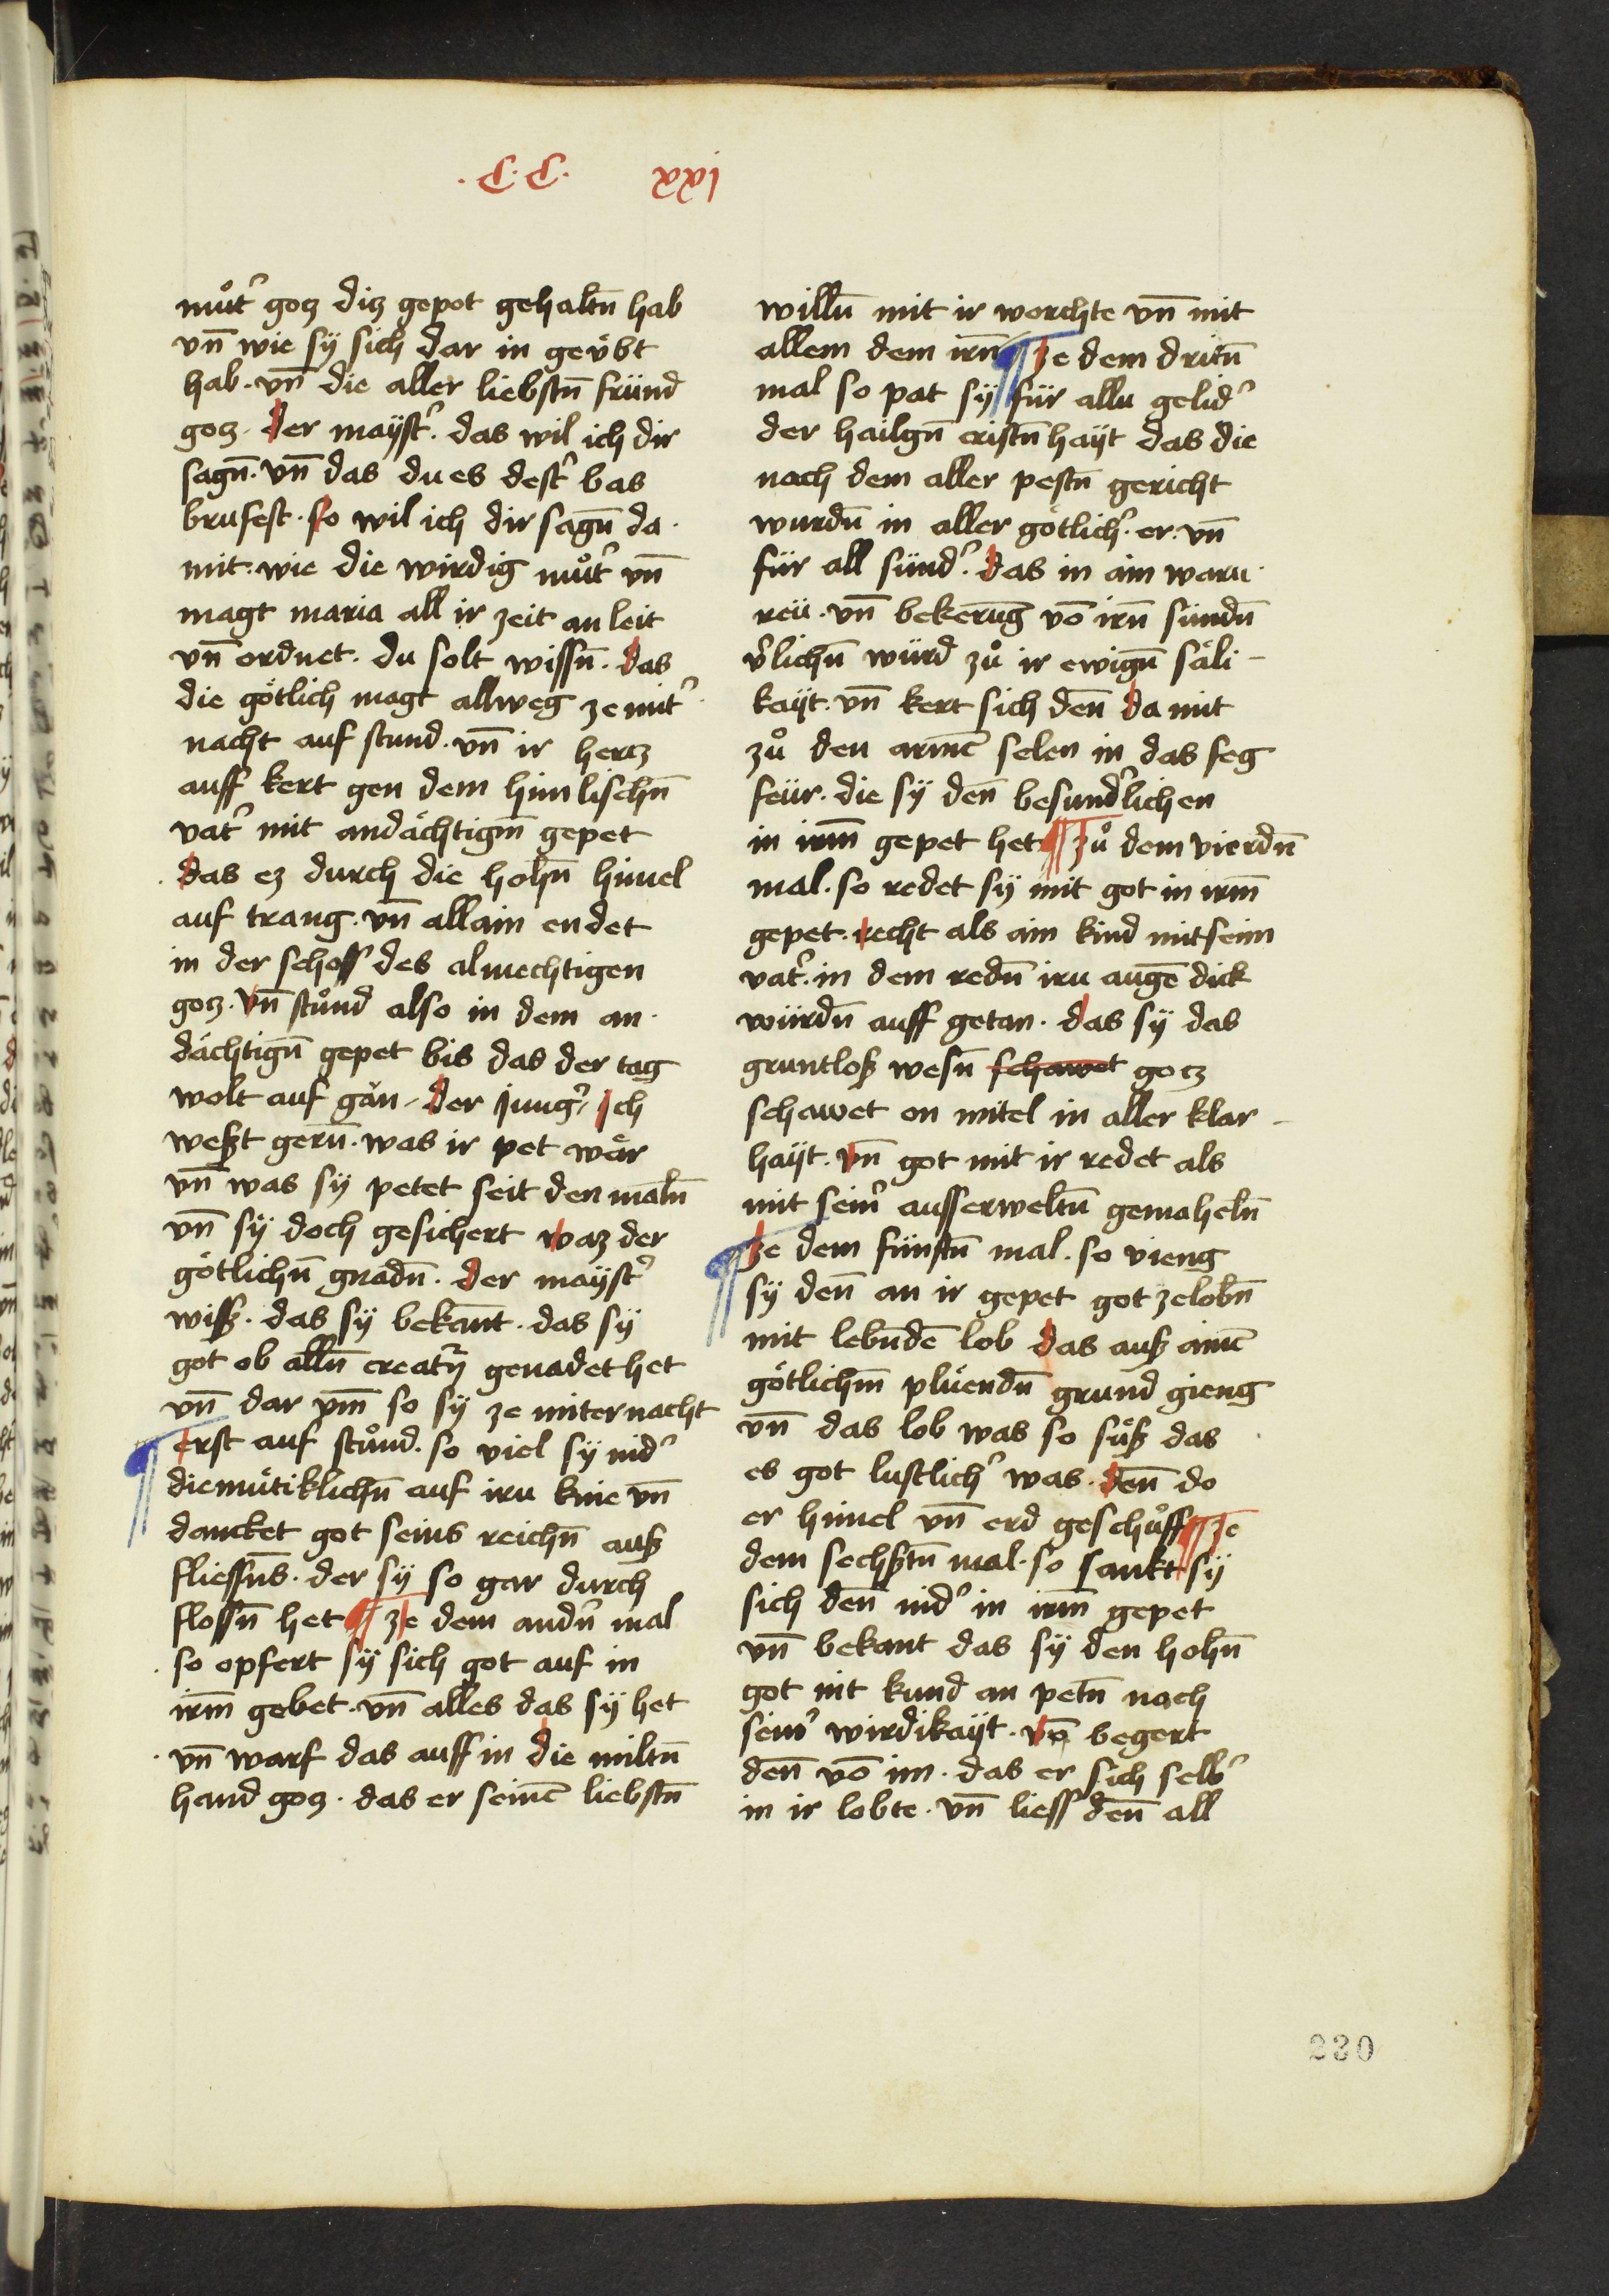 ·C·C· lxxi
muͦt᷑ gocz dicz gepot gehaltn̄ hab
vn̄ wie sÿ sich dar in geuͤbt
hab · vn̄ die aller liebstn̄ fründ
gocz · der maÿst᷑ · das wil ich dir
sagn̄ · vn̄ das du es dest᷑ bas
brufest · so wil ich dir sagn̄ da ·
mit · wie die wirdig muͦt᷑ vn̄
magt maria all ir zeit an leit
vn̄ ordnet · du solt wissn̄ · das
die goͤtlich magt allweg ze mit᷑
nacht auf stund · vn̄ ir hercz
auff kert gen dem himlischn̄
vat᷑ mit andaͤchtigm̄ gepet
das ez durch die hohn̄ himel
auf trang · vn̄ allain endet
in der schoss des almechtigen
gocz · vn̄ stuͦnd also in dem an ·
daͤchtign̄ gepet bis das der tag
wolt auf gan · der jung᷑ · ich
weßt gern̄ · was ir pet waͤr
vn̄ was sÿ petet seit den maln̄
vn̄ sÿ doch gesichert waz der
goͤtlichn̄ gnadn̄ · der maÿst᷑
wiß · das sÿ bekānt · das sÿ
got ob alln̄ creatr̄ genadet het
vn̄ dar vm̄ so sÿ ze miternacht
erst auf stuͦnd · so viel sÿ nid᷑
diemuͤtiklichn̄ auf iru knie vn̄
dancket got seins reichn̄ auß
fliessn̄s · der sÿ so gar durch
flossn̄ het ¶ ze dem andn᷑ mal
so opfert sÿ sich got auf in
irm̄ gebet · vn̄ alles das sÿ het
vn̄ warf das auff in die miltn̄
hand gocz · das er seinē liebstn̄
willn̄ mit ir worchte vn̄ mit
allem dem irn̄ ¶ ze dem dritn̄
mal so pat sÿ für allu gelid᷑
der hailgn̄ cristn̄ haÿt das die
nach dem aller pestn̄ gericht
wurdn̄ in aller goͤtlich᷑ · er · vn̄
für all sünd᷑ · das in ain waru ·
reü · vn̄ bekerūg vō irn̄ sundn̄
v᷑lichn̄ würd zuͦ ir ewign̄ saͤli -
kaÿt · vn̄ kert sich den̄ da mit
zuͦ den armē selen in das feg
feür · die sÿ den̄ besund᷑lichen
in irm̄ gepet het ¶ zuͦ dem vierdn̄
mal · so redet sÿ mit got in irm̄
gepet · recht als ain kind mit seim
vat᷑ · in dem redn̄ iru augē dick
würdn̄ auff getan · das sÿ das
gruntloß wesn̄ schawet gocz
schawet on mitel in aller klar -
haÿt · vn̄ got mit ir redet als
mit sein᷑ ausserweltn̄ gemaheln̄
¶ ze dem fünftn̄ mal · so vieng
sÿ den̄ an ir gepet got ze lobn̄
mit lebndē lob das auß ainē
goͤtlichm̄ pluͤendn̄ grund gieng
vn̄ das lob was so suͤß das
es got lustlich᷑ was · den̄ do
er himel vn̄ erd geschuͦff ¶ ze
dem sechßtn̄ mal · so sankt sÿ
sich den̄ nid᷑ in irm̄ gepet
vn̄ bekant das sÿ den hohn̄
got nit kund an petn̄ nach
sein᷑ wirdikaÿt · vō begert
den̄ vō im · das er sich selb᷑
in ir lobte · vn̄ liess den̄ all
230